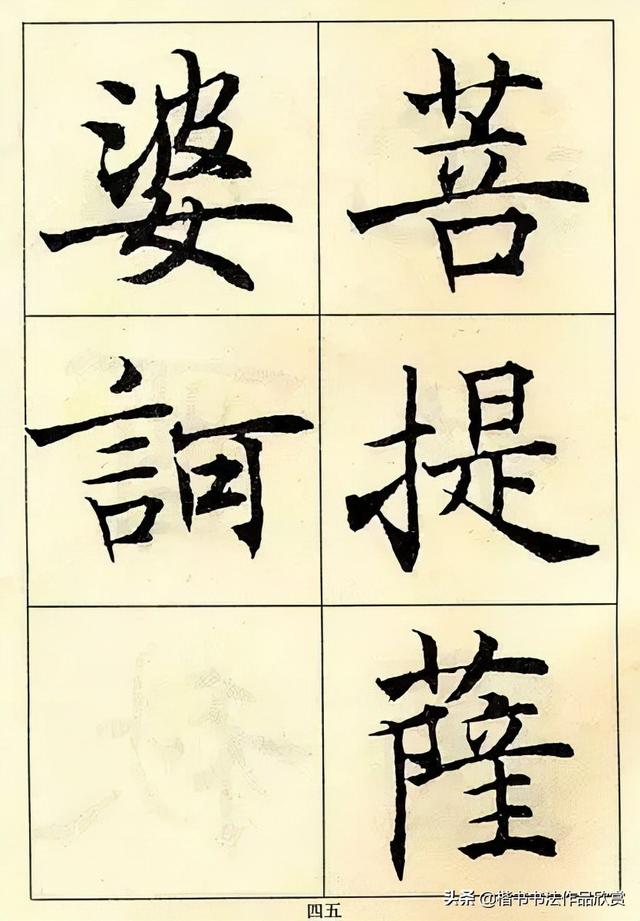 菩提薩
婆訶
四五
头条@楷书书法作品欣赏